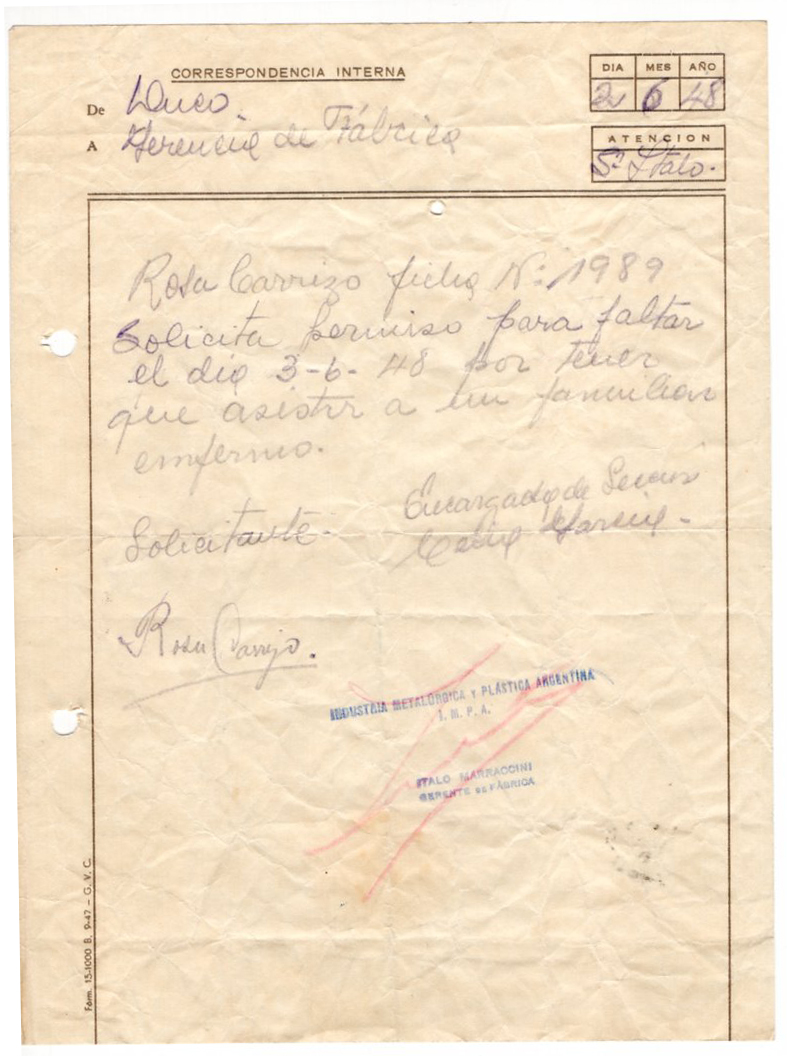 CORRESPONDENCIA INTERNA
DIA MES AÑO
2 6 48
De
A Gerencia de Fábrica
ATENCION
Sr Italo.
Rosa Carrizo ficha Nº: 1989
Solicita permiso para faltar
el dia 3-6-48 por tener
que asistir a un familiar
enfermo.
Encargada de
Solicitante.
Rosa Carrizo.
INDUSTRIA METALÚRGICA Y PLÁSTICA ARGENTINA
I. M. P. A.
ITALO MARRACCINI
GERENTE DE FÁBRICA
Form. 15-1000 B. 9-47 – G. V. C.